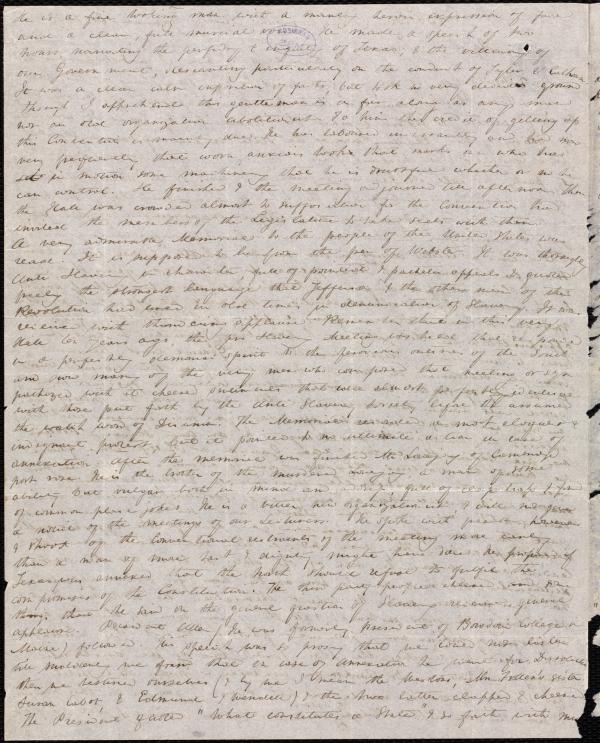 He is a fine looking man with a manly heroic expression of face
and a clear, full musical voice. He made a speech of two
hours narrating the perfidy & iniquity of Texas, & the villainy of
our Government, descanting particularly on the conduct of Tyler & Calhoun
It was a clear calm exposition of facts, but took no very decided ground
though I apprehend this gentleman is as far along as any man
not an old organization abolitionist. To him the credit of getting up
this Convention is mainly due. He has laboured incessantly and has now
very frequently that worn anxious look that marks one who has
set in motion some machinery that he is doubtful whether or no he
can control. He finished & the meeting adjourned till afternoon when
the Hall was crowded almost to suffocation for the Convention had
invited the members of the Legislature to take seats with them
A very admirable Memorial to the people of the United States was
read. It is supposed to be from the pen of Webster. It was thoroughly
Anti Slavery in character full of pointed & pathetic appeals & quoted
freely the strongest language that Jefferson & the other men of the
Revolution had used in old times in denunciation of Slavery. It was
received with thundering applause. Remember that in this very
Hall 10 years ago, the pro Slavery meeting was held that responded
in a perfectly demonic spirit to the ferocious outcries of the South
and now many of the very men who composed that meeting or sym
pathized with it cheer sentiments that were almost perfectly identical
with those put forth by the Anti Slavery Society before they assumed
the watch word of Disunion. The Memorial recorded a most eloquent &
indignant protest, but it pointed to no ultimate action in case of
annexation. After the memorial was finished Mr Lovejoy of Cambridge
port rose. He is the brother of the murdered Lovejoy a man of some
ability but vulgar both in mind and
of common place jokes. He is a bitter new organizationist, & will not give
a notice of the meetings of our Lecturers. He spoke with great
& shook off the conventional restraints of the meeting more easily
than a man of more tact & dignity might have done. He proposed if
Texas was annexed that the North should refuse to fulfil the
compromises of the Constitution. The third party people cheered
them, than the had on the general question of Slavery received general
applause. President Allen (he was formerly president of Bowdoin college in
Maine) followed his speech was so prosy that we could not listen
till informed me from that in case of Annexation he went for Dissolution
then we bestirred ourselves (& by me I mean the Westons, Mrs Follen's sister
Susan Cabot, & Edmund Wendell) & the two latter clapped & cheered
The President quoted "What constitutes a State" & so forth with much